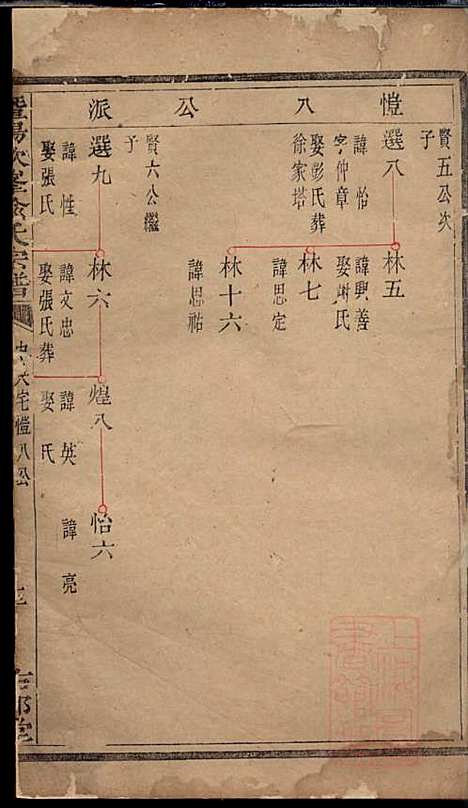 愷八公派
賢五公次子
選八
諱怡
字仲章
娶彭氏葬
徐家塔
林五
諱興善
娶謝氏
林七
諱思定
林十六
諱思祐
賢六公繼子
選九
諱性
娶張氏
林六
諱文忠
娶張氏葬
煌八
諱英
娶氏
怡六
諱亮
暨陽次峯俞氏宗譜
六宅愷八公